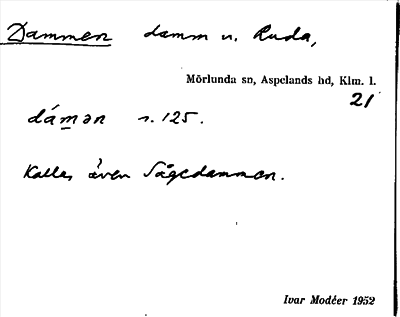 Dammen damm u. Ruda,
Mörlunda sn, Aspelands hd, Klm. l.
21
dámən s. 125.
Kallas även Sågedammen.
Ivar Modéer 1952